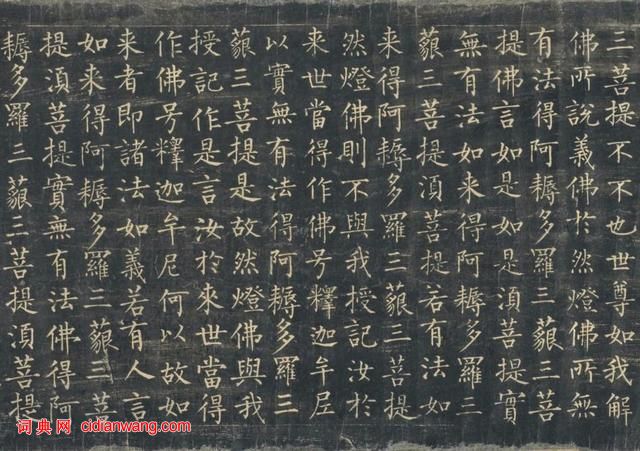 三菩提不不也世尊如我解
佛所說義佛於然燈佛所無
有法得阿耨多羅三藐三菩
提佛言如是如是湏菩提實
無有法如来得阿耨多羅三
藐三菩提湏菩提若有法如
来得阿耨多羅三藐三菩提
然燈佛則不與我授記汝於
来世當得作佛号釋迦牟尼
以實無有法得阿耨多羅三
藐三菩提是故然燈佛與我
授記作是言汝於来世當得
作佛号釋迦牟尼何以故如
来者即諸法如義若有人言
如来得阿耨多羅三藐三菩
提湏菩提實無有法佛得阿
耨多羅三藐三菩提湏菩提
词典网 cidianwang.com